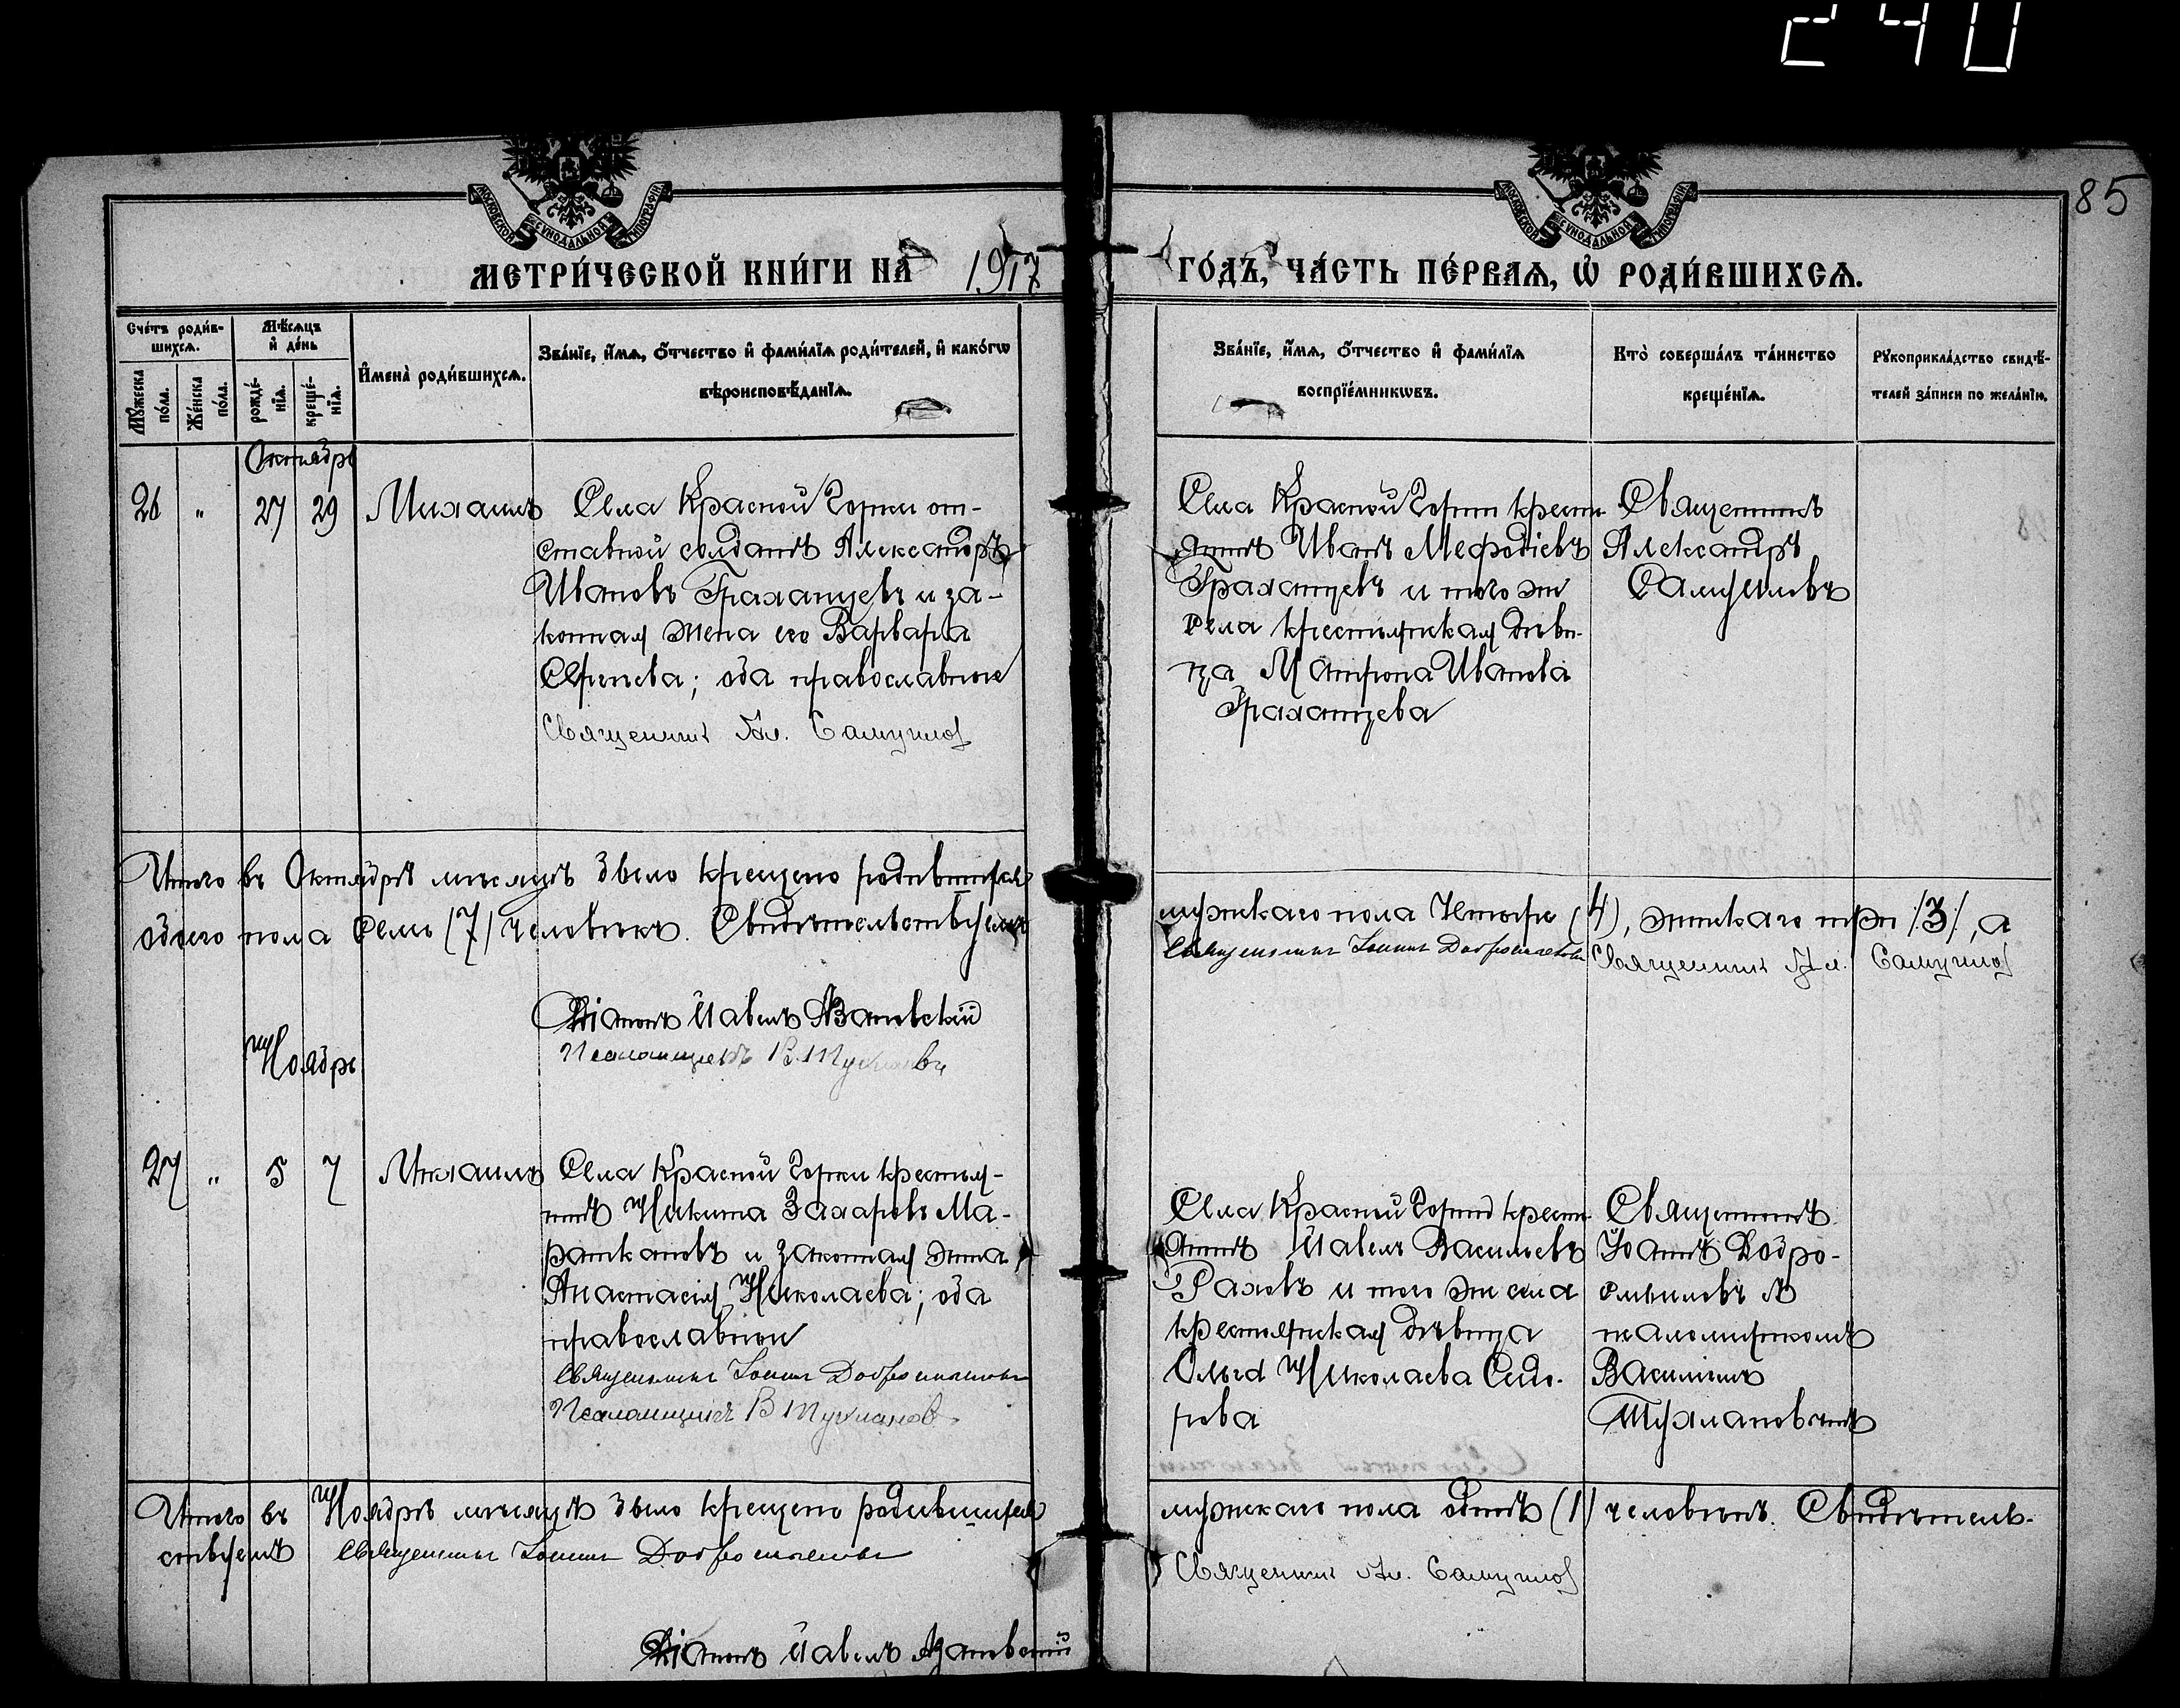 240
85
МОСКОВСКОЙ СѴНОДАЛЬНОЙ ТИПОГРАФІИ
МОСКОВСКОЙ СѴНОДАЛЬНОЙ ТИПОГРАФІИ
МЕТРИ́ЧЕСКОЙ КНИ́ГИ НА 1917
ГО́ДЪ, ЧА́СТЬ ПЕ́РВАѦ, Ѡ҆ РОДИ́ВШИХСѦ.
Сче́тъ роди́в-
шихсѧ.
Мꙋ́жеска
по́ла.
Же́нска
по́ла.
Мѣ́сѧцъ
и҆ де́нь
рожде́-
нїѧ.
креще́-
нїѧ.
И҆мена̀ роди́вшихсѧ.
Зва́нїе, и҆́мѧ, ѻ҆́тчество и҆ фами́лїѧ роди́телей, и҆ како́гѡ
вѣроисповѣ́данїѧ.
Зва́нїе, и҆́мѧ, ѻ҆́тчество и҆ фами́лїѧ
воспрїе́мникѡвъ.
Кто̀ соверша́лъ та́инство
креще́нїѧ.
Рꙋкоприкла́дство свидѣ́-
телей за́писи по жела́нїю.
Октябрь
26 " 27 29 Михаилъ
Села Красной Горки от-
ставной солдатъ Александръ
Ивановъ Грахатцевъ и за-
конная жена его Варвара
Сергѣева; оба православные
Священникъ Ал. Самуилов
Села Красной Горки крестья-
нинъ Иванъ Мефодіевъ
Грахатцевъ и того же
села крестьянская дѣви-
ца Матрона Иванова
Грахатцева
Священникъ
Александръ
Самуиловъ
Итого въ Октябрѣ мѣсяцѣ было крещено родившихся
мужскаго пола четыре (4), женскаго три /3/, а
обоего пола семь (7) человѣкъ. Свидѣтельствуемъ
Священникъ Іоаннъ Добросмысловъ Священникъ Ал. Самуилов
Діаконъ Павелъ Азановскій
Псаломщикъ В.
Ноябрь
27 " 5 7 Михаилъ
Села Красной Горки крестья-
нинъ Никита Захаровъ Ма-
раткановъ и законная жена
Анастасія Николаева; оба
православные
Священникъ Іоаннъ Добросмысловъ
Псаломщикъ В Тукмановъ
Села Красной Горки крестья-
нинъ Павелъ Васильевъ
Раховъ и того же села
крестьянская дѣвица
Ольга Николаева Сидо-
рова
Священникъ
Іоаннъ Добро-
смысловъ съ
псаломщикомъ
Василіемъ
Итого въ Ноябрѣ мѣсяцѣ было крещено родившихся
мужскаго пола одинъ (1) человѣкъ. Свидѣтель-
ствуемъ Священникъ Іоаннъ Добросмысловъ
Священникъ Ал. Самуилов
Діаконъ Павелъ Азановскій